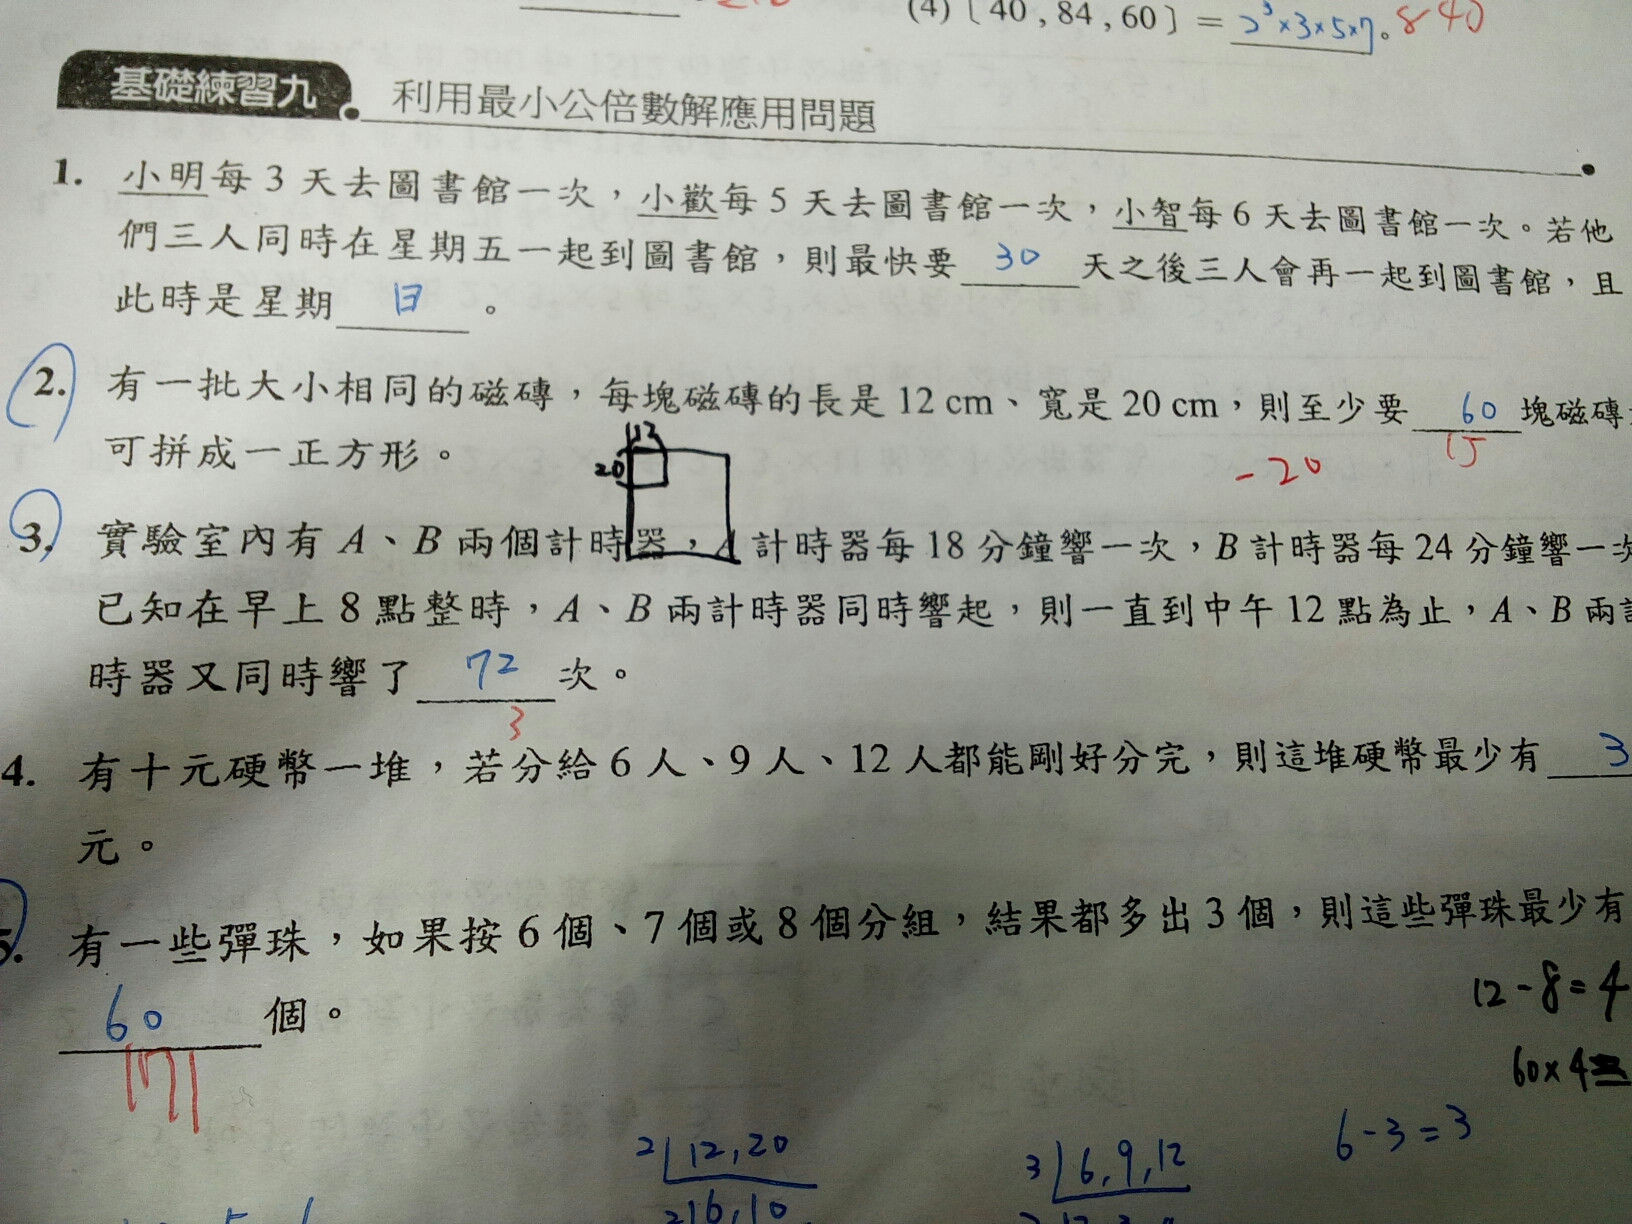 (4)〔40,84,60〕= 2³×3×5×7。840
基礎練習九 利用最小公倍數解應用問題
1. 小明每3天去圖書館一次,小歡每5天去圖書館一次,小智每6天去圖書館一次。若他
們三人同時在星期五一起到圖書館,則最快要 30 天之後三人會再一起到圖書館,且
此時是星期 日 。
2. 有一批大小相同的磁磚,每塊磁磚的長是12 cm、寬是20 cm,則至少要 60 塊磁磚
15
可拼成一正方形。
12
20
-20
3. 實驗室內有A、B兩個計時器,A計時器每18分鐘響一次,B計時器每24分鐘響一次
已知在早上8點整時,A、B兩計時器同時響起,則一直到中午12點為止,A、B兩計
時器又同時響了 72 次。
3
4. 有十元硬幣一堆,若分給6人、9人、12人都能剛好分完,則這堆硬幣最少有 3
元。
5. 有一些彈珠,如果按6個、7個或8個分組,結果都多出3個,則這些彈珠最少有
60 個。
171
12-8=4
60×4=
6-3=3
2 12,20
2 6,10
3 6,9,12